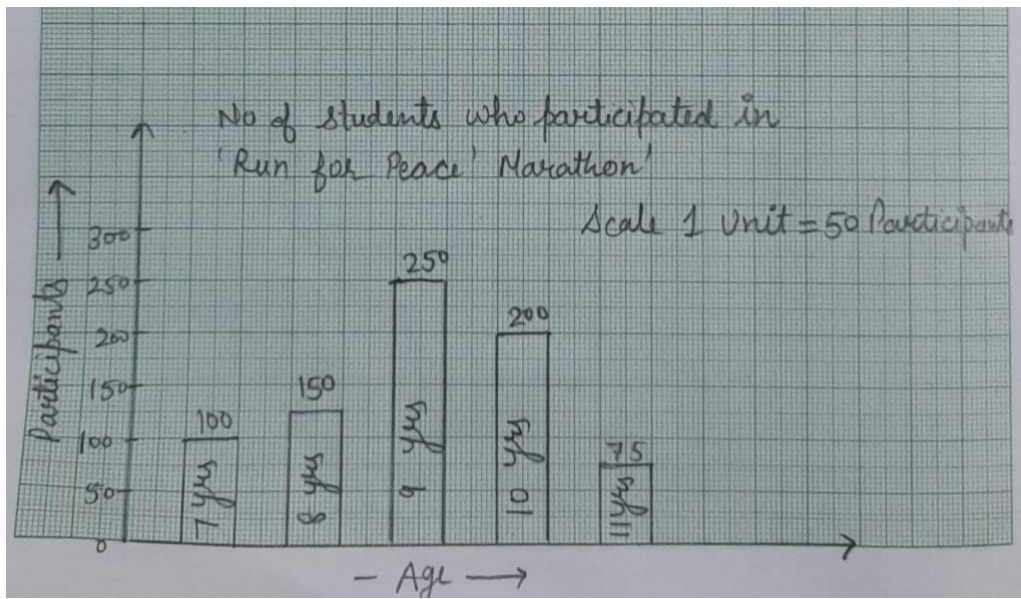 No of students who participated in
'Run for Peace' Marathon'
Scale 1 Unit = 50 Participants
Participants
300
250
200
150
100
50
0
100
150
250
200
75
7 yrs
8 yrs
9 yrs
10 yrs
11 yrs
- Age